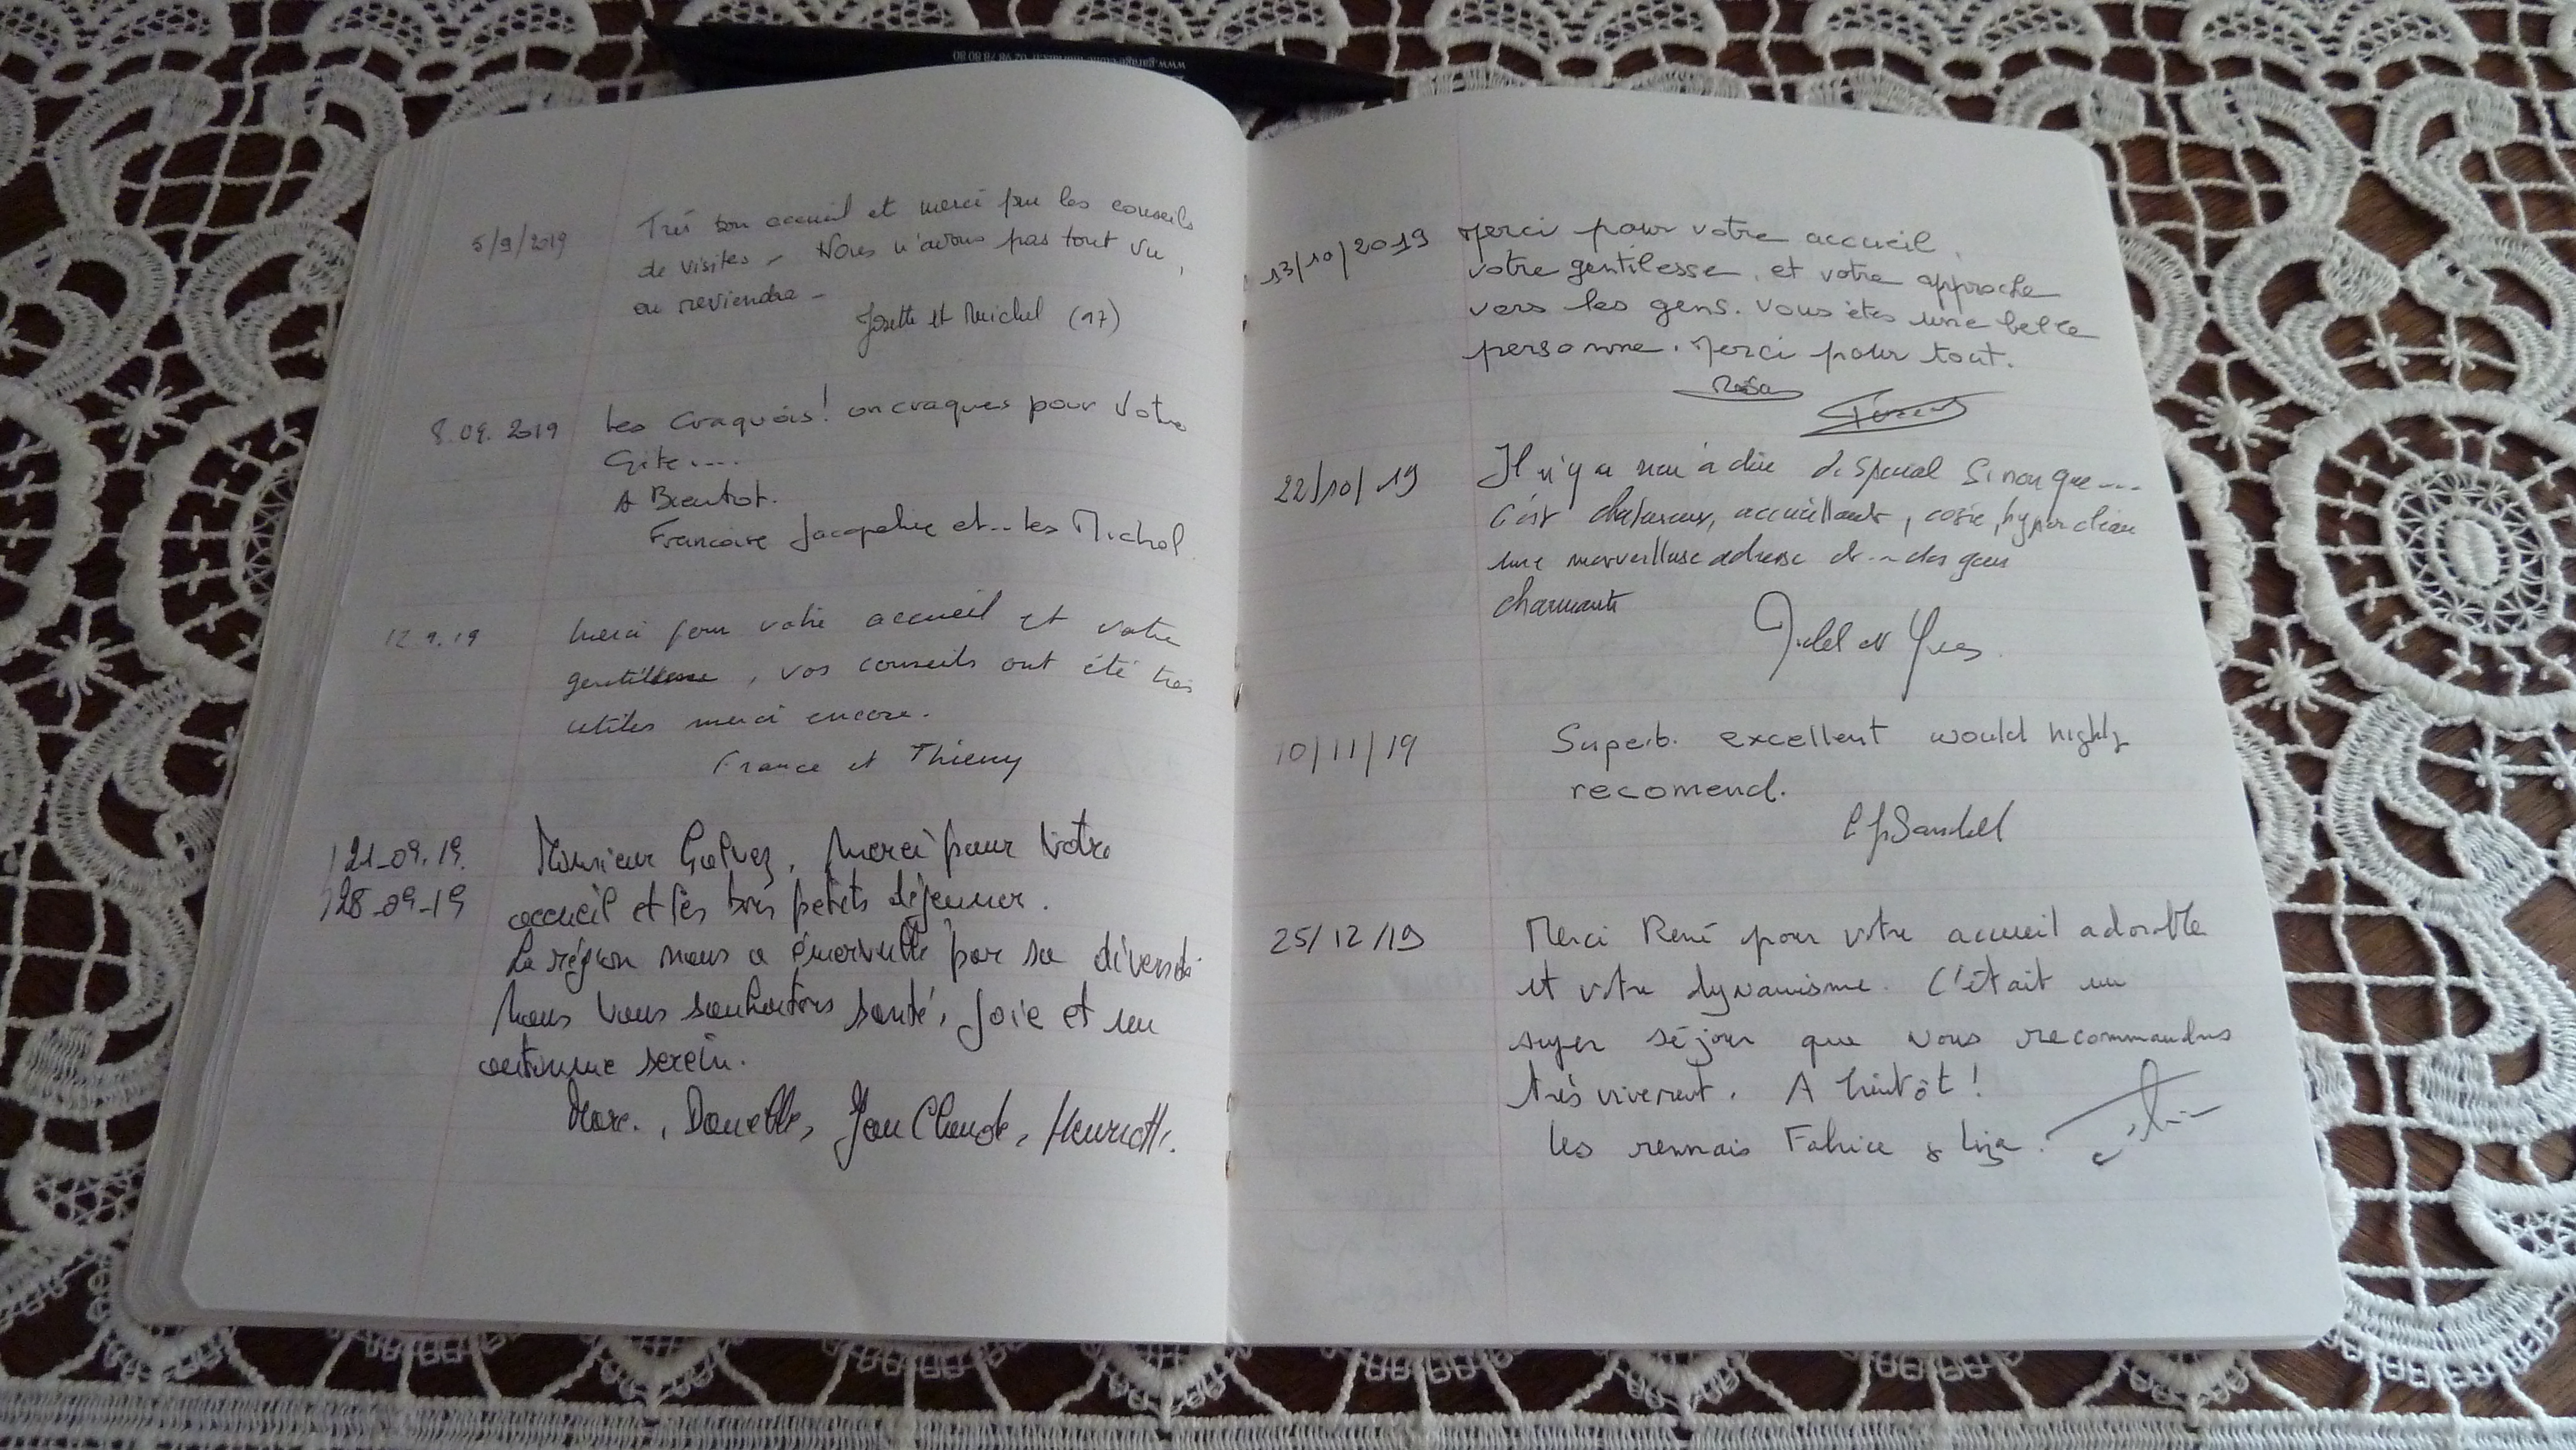 5/9/2019 Très bon accueil et merci pour les conseils
de visites - Nous n'avons pas tout vu,
on reviendra -
Josette et Michel (17)
8.09.2019 Les Craquois! on craques pour Votre
Gite....
A Bientot.
Francoise Jacqueline et... les Michel
12.9.19 Merci pour votre accueil et votre
gentillesse, vos conseils ont été très
utiles merci encore.
France et Thierry
21-09.19. Monsieur Galvez, Merci pour Votre
28-09-19 accueil et les bons petits déjeuner.
La région nous a émerveillé par sa diversité
Nous Vous souhaitons santé, joie et un
automne serein.
Marc., Danielle, Jean Claude, Henriette.
13/10/2019 Merci pour votre accueil,
votre gentilesse, et votre approche
vers les gens. Vous êtes une belle
personne. Merci pour tout.
Rosa
22/10/19 Il n'y a rien à dire de spécial Sinon que....
C'est chaleureux, accueillant, cosie, hyper clean
une merveilleuse adresse et... des gens
charmants
et Yves
10/11/19 Superb. excellent would highly
recomend.
25/12/19 Merci René pour votre accueil adorable
et votre dynamisme. C'était un
super séjour que nous recommandons
très vivement. A bientôt!
les rennais Fabrice & Liza.
www.garage 02 98 78 80 80